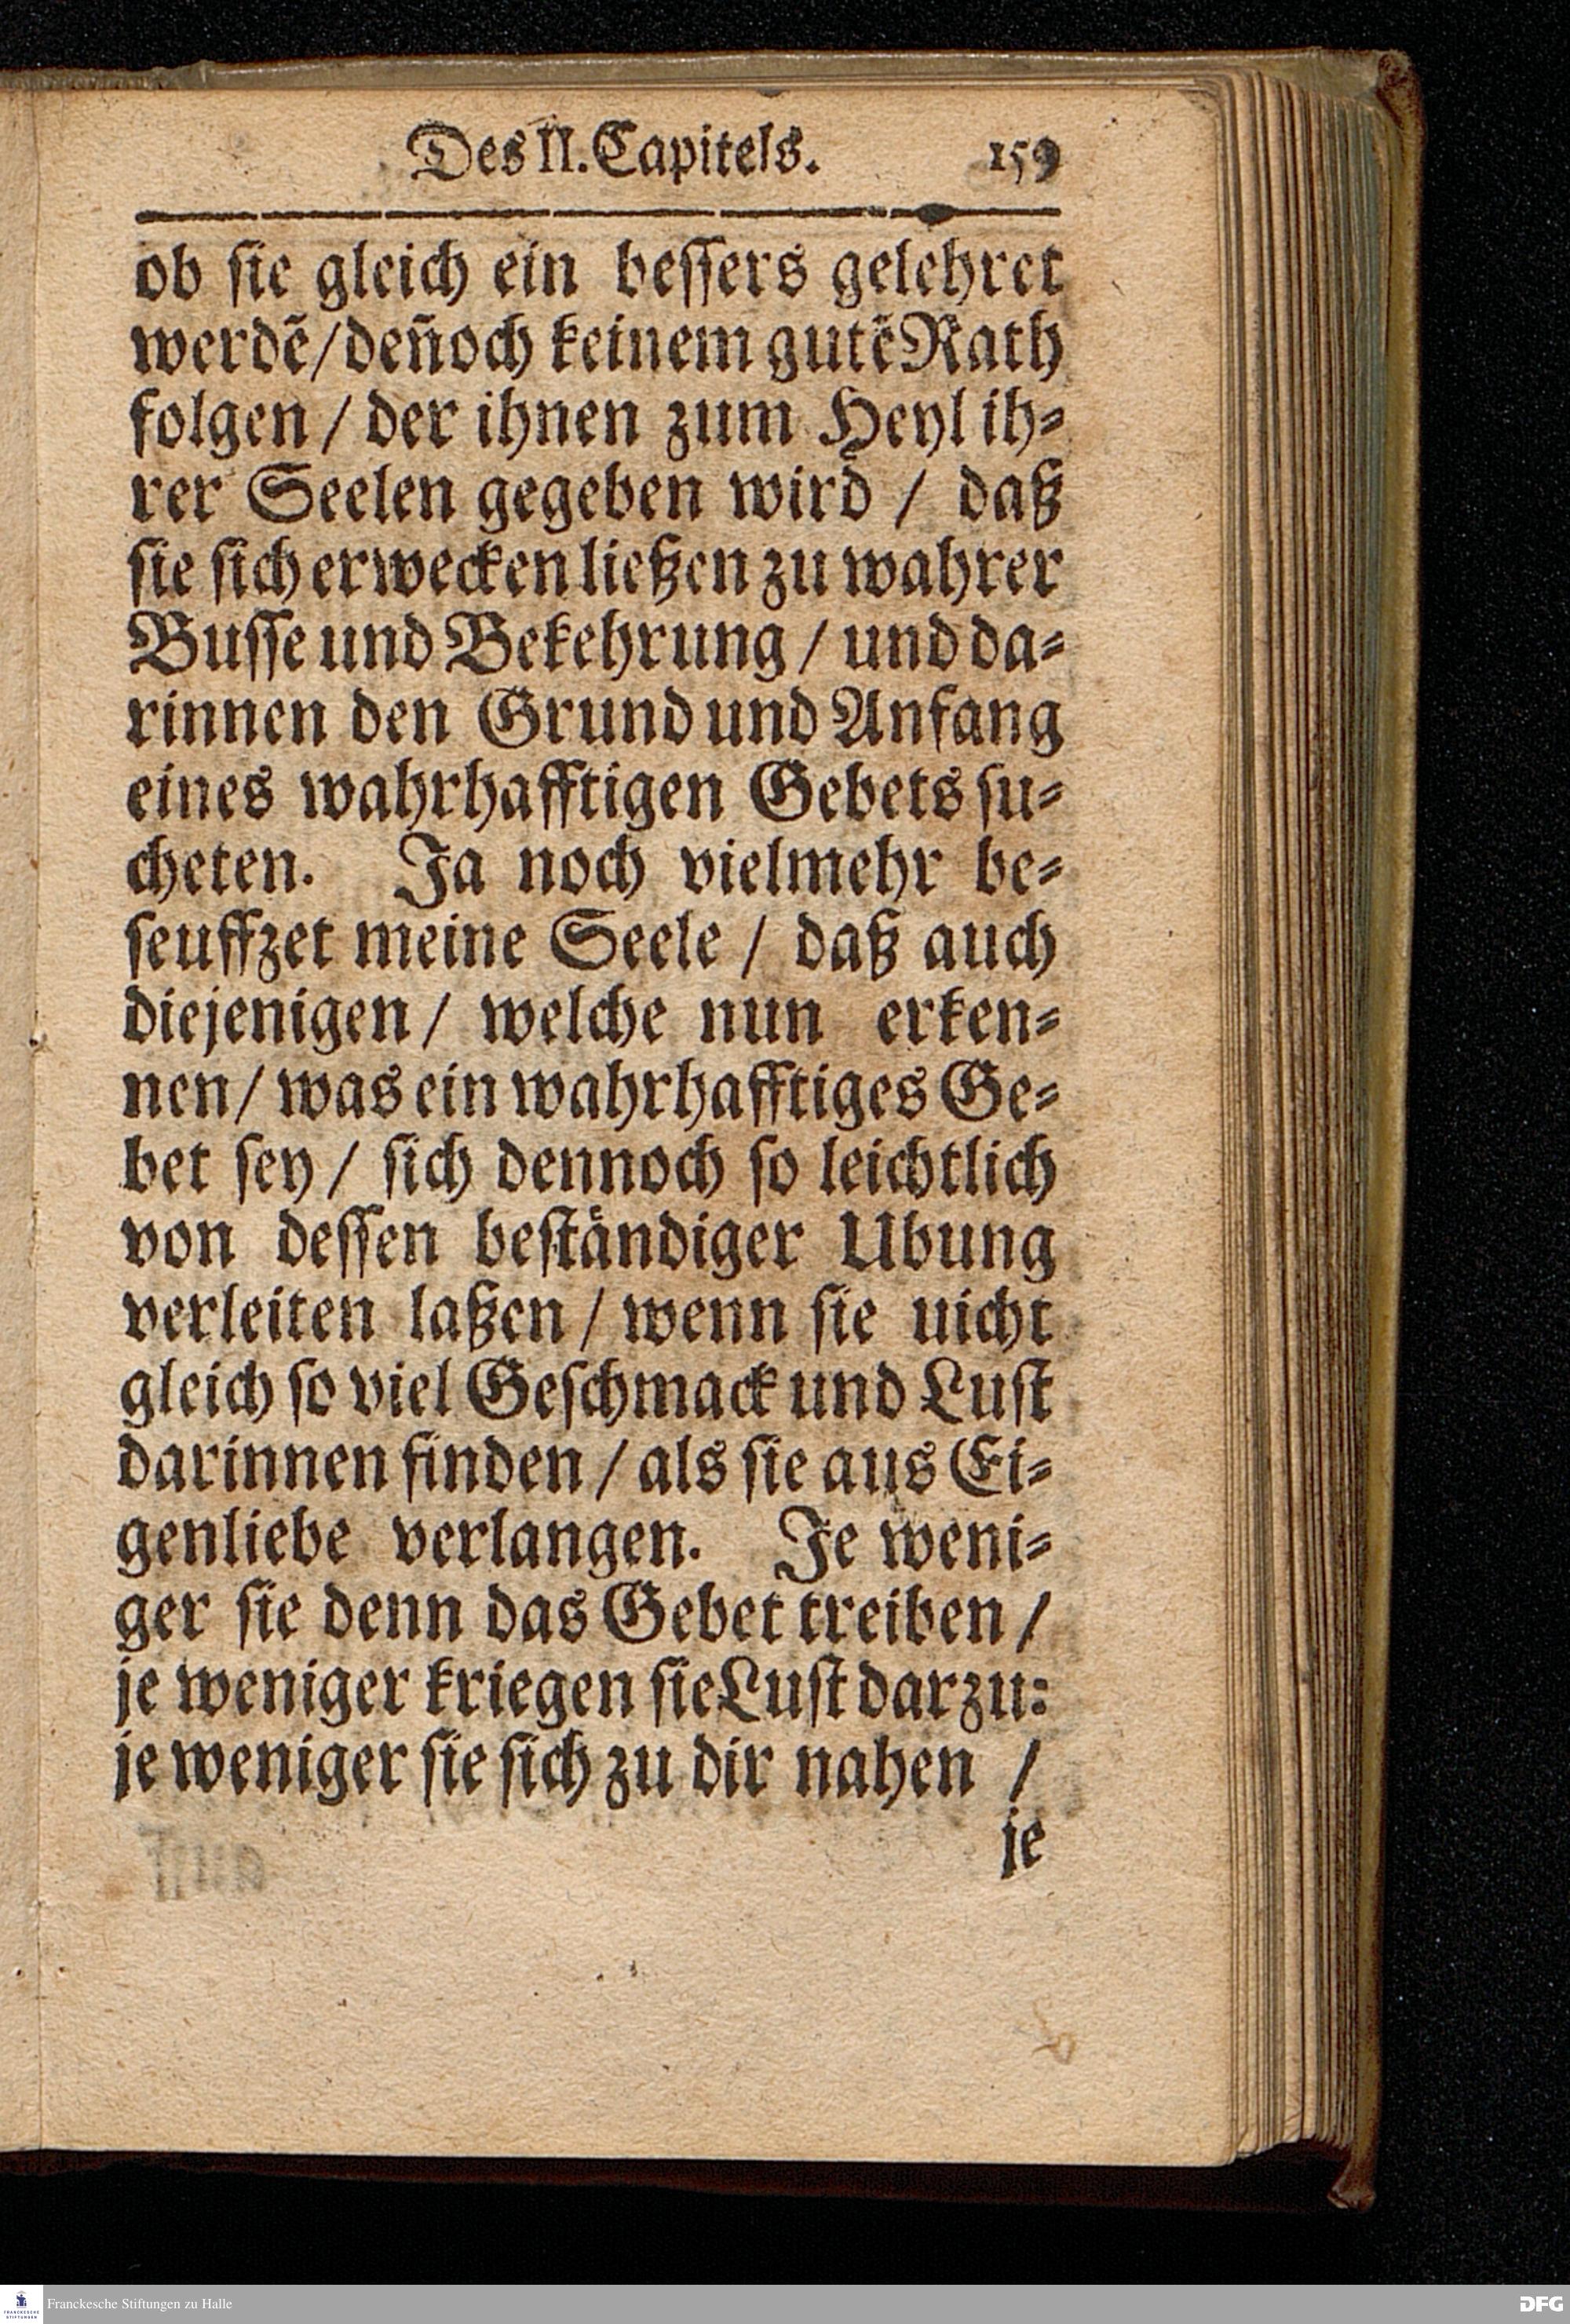 Des II. Capitels. 159
ob sie gleich ein bessers gelehret
werdẽ/deñoch keinem gutẽ Rath
folgen / der ihnen zum Heyl ih⸗
rer Seelen gegeben wird / daß
sie sich erwecken ließen zu wahrer
Busse und Bekehrung / und da⸗
rinnen den Grund und Anfang
eines wahrhafftigen Gebets su⸗
cheten. Ja noch vielmehr be⸗
seuffzet meine Seele / daß auch
diejenigen / welche nun erken⸗
nen / was ein wahrhafftiges Ge⸗
bet sey / sich dennoch so leichtlich
von dessen beständiger Ubung
verleiten laßen / wenn sie uicht
gleich so viel Geschmack und Lust
darinnen finden / als sie aus Ei⸗
genliebe verlangen. Je weni⸗
ger sie denn das Gebet treiben /
je weniger kriegen sie Lust darzu:
je weniger sie sich zu dir nahen /
je
FRANCKESCHE STIFTUNGEN
Franckesche Stiftungen zu Halle
DFG